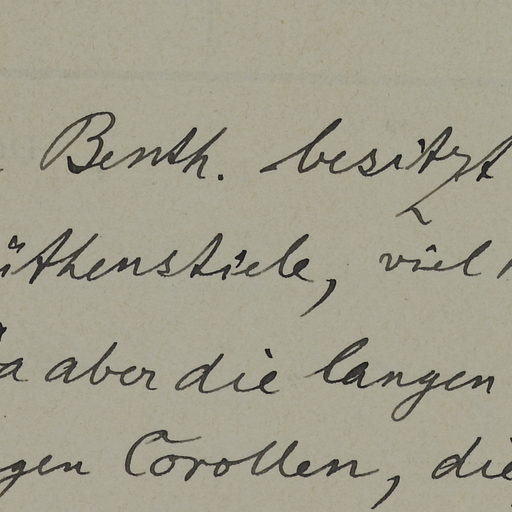 Benth. besitzt
üthenstiele, viel
Da aber die langen
gen Corollen, die